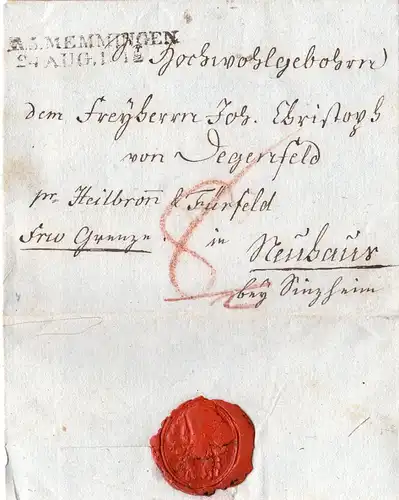 R.3.MEMMINGEN
24 AUG. 181
Hochwohlgebohrn
dem Freyherrn Joh. Christoph
von Degenfeld
pr Heilbron̄ & Fürfeld
Frco Grenze. in
8
Neuhaus
bey Sinzheim